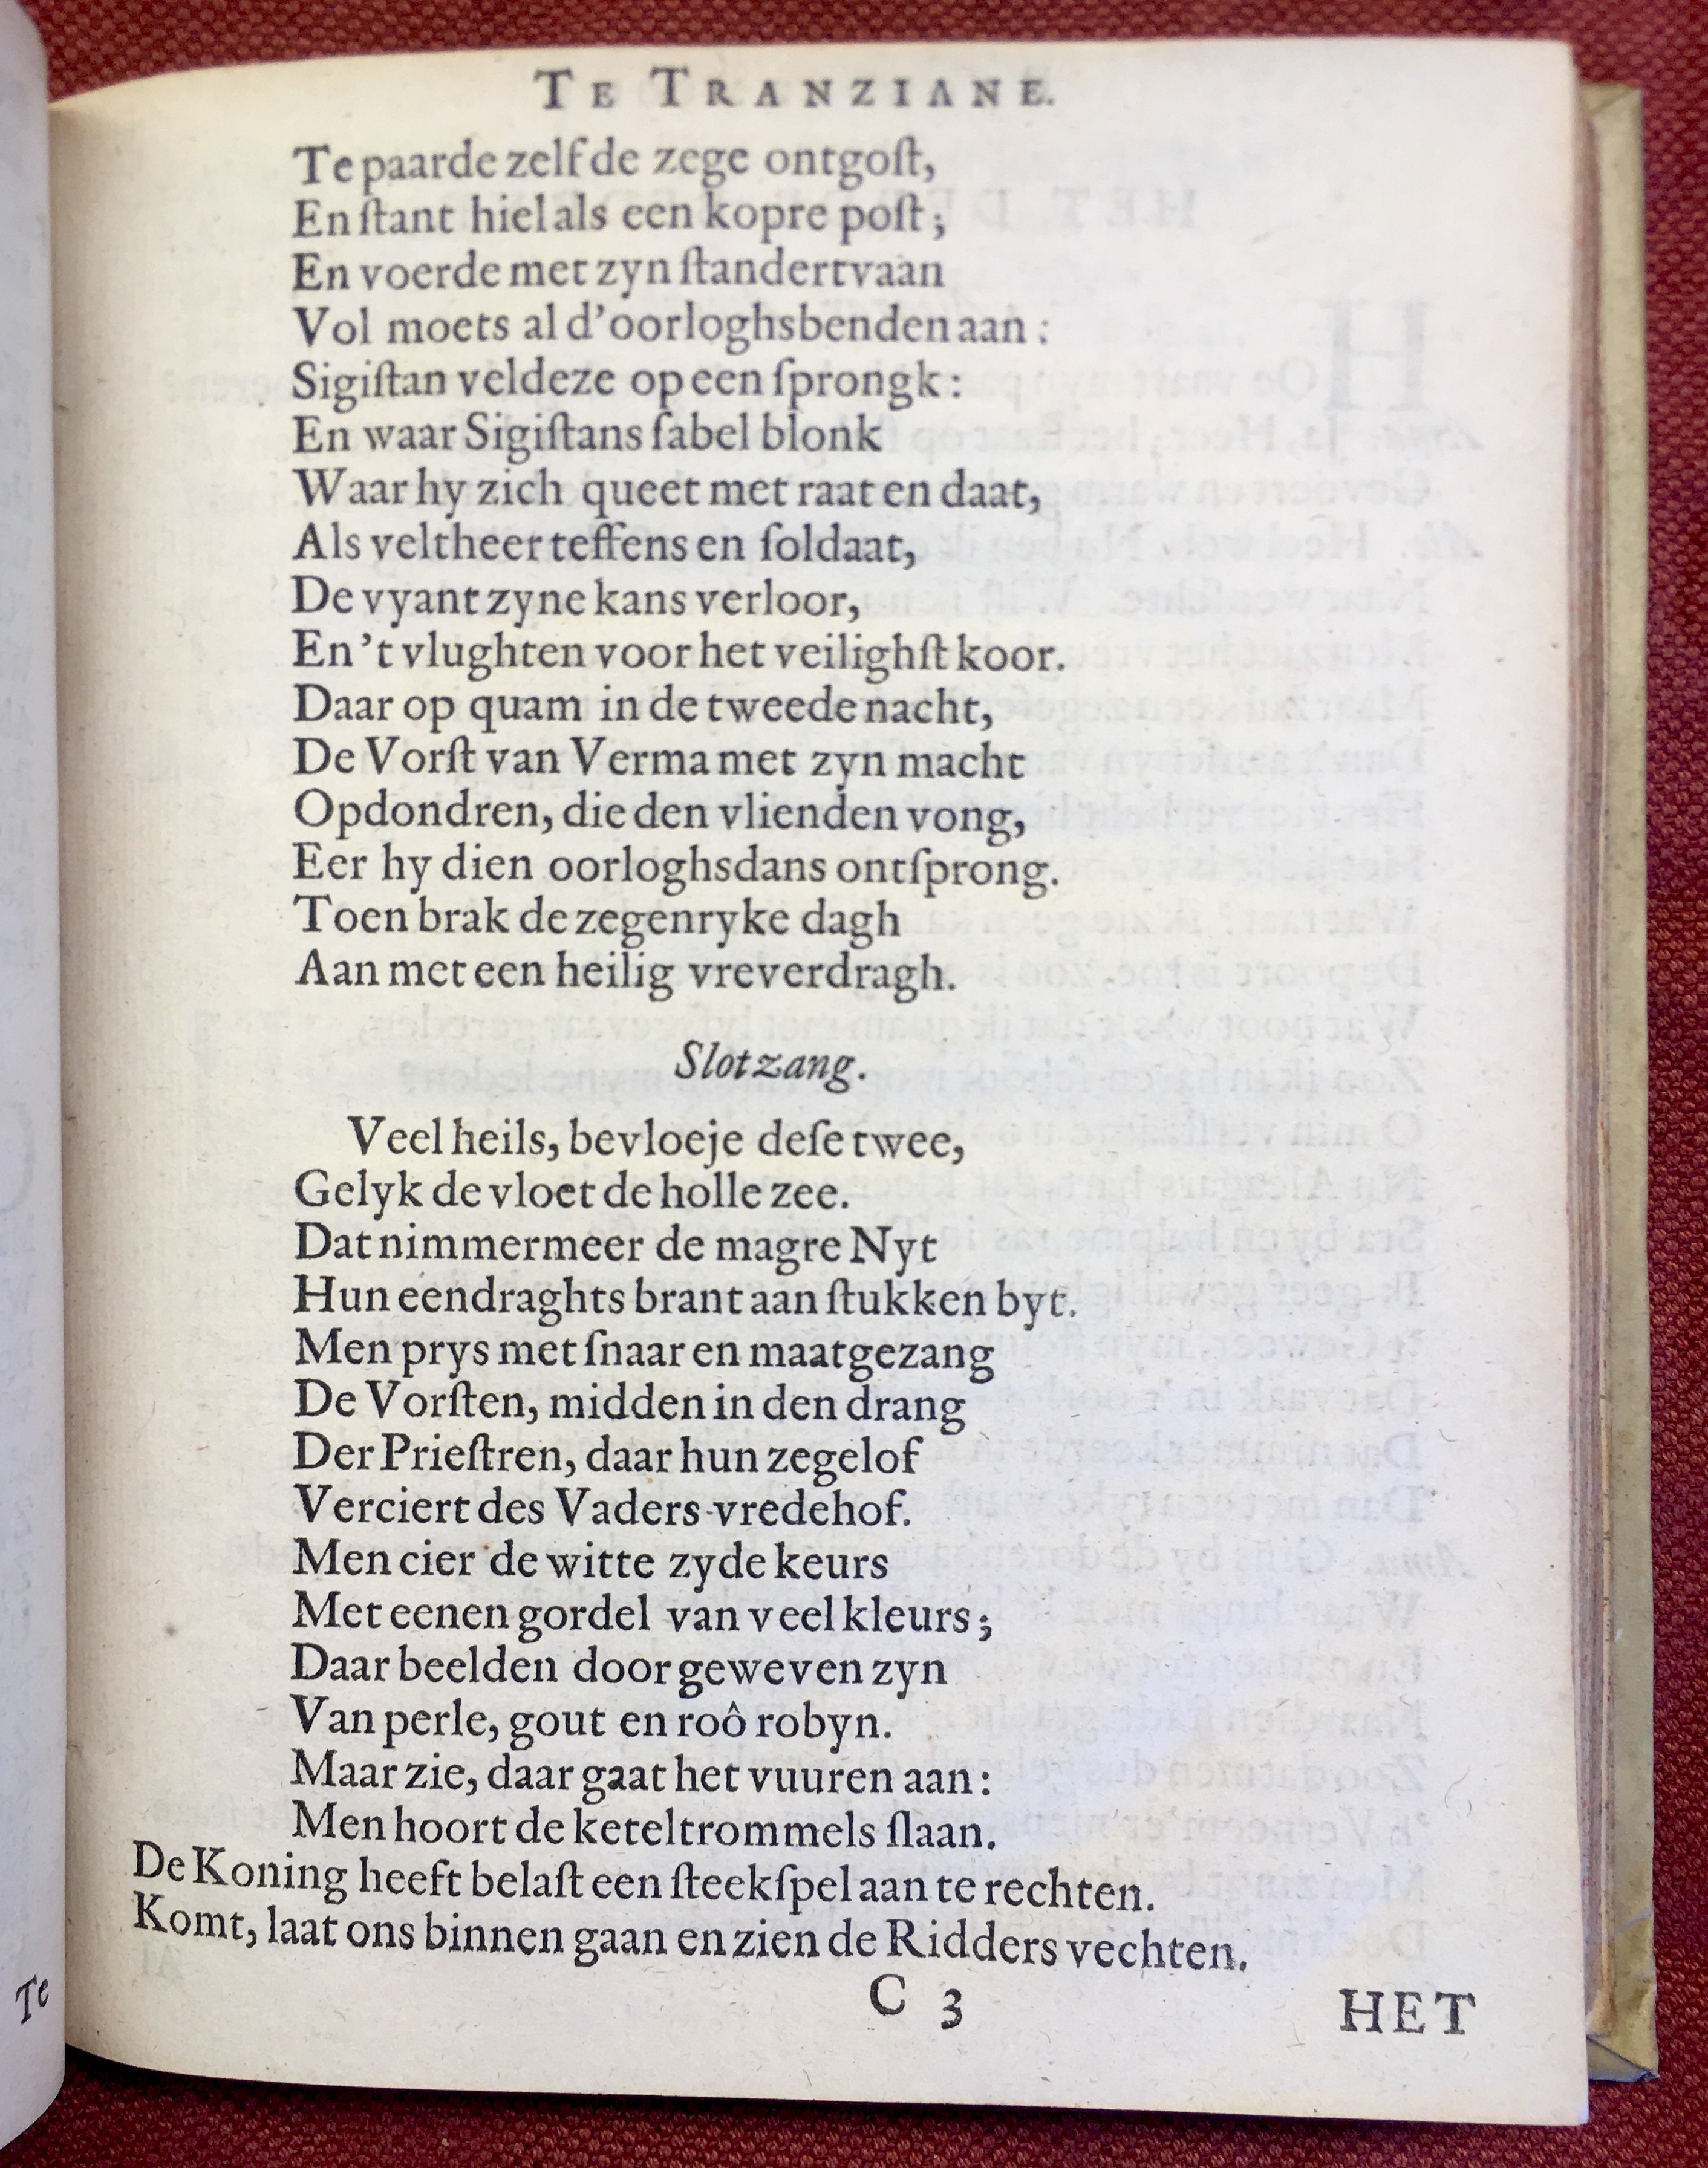 TE TRANZIANE.
Te paarde zelf de zege ontgoſt,
En ſtant hiel als een kopre poſt;
En voerde met zyn ſtandertvaan
Vol moets al d'oorloghsbenden aan:
Sigiſtan veldeze op een ſprongk:
En waar Sigiſtans ſabel blonk
Waar hy zich queet met raat en daat,
Als veltheer teffens en ſoldaat,
De vyant zyne kans verloor,
En 't vlughten voor het veilighſt koor.
Daar op quam in de tweede nacht,
De Vorſt van Verma met zyn macht
Opdondren, die den vlienden vong,
Eer hy dien oorloghsdans ontſprong.
Toen brak de zegenryke dagh
Aan met een heilig vreverdragh.
Slotzang.
Veel heils, bevloeje deſe twee,
Gelyk de vloet de holle zee.
Dat nimmermeer de magre Nyt
Hun eendraghts brant aan ſtukken byt.
Men prys met ſnaar en maatgezang
De Vorſten, midden in den drang
Der Prieſtren, daar hun zegelof
Verciert des Vaders vredehof.
Men cier de witte zyde keurs
Met eenen gordel van veel kleurs;
Daar beelden door geweven zyn
Van perle, gout en roô robyn.
Maar zie, daar gaat het vuuren aan:
Men hoort de keteltrommels ſlaan.
De Koning heeft belaſt een ſteekſpel aan te rechten.
Komt, laat ons binnen gaan en zien de Ridders vechten.
C 3
HET
Te